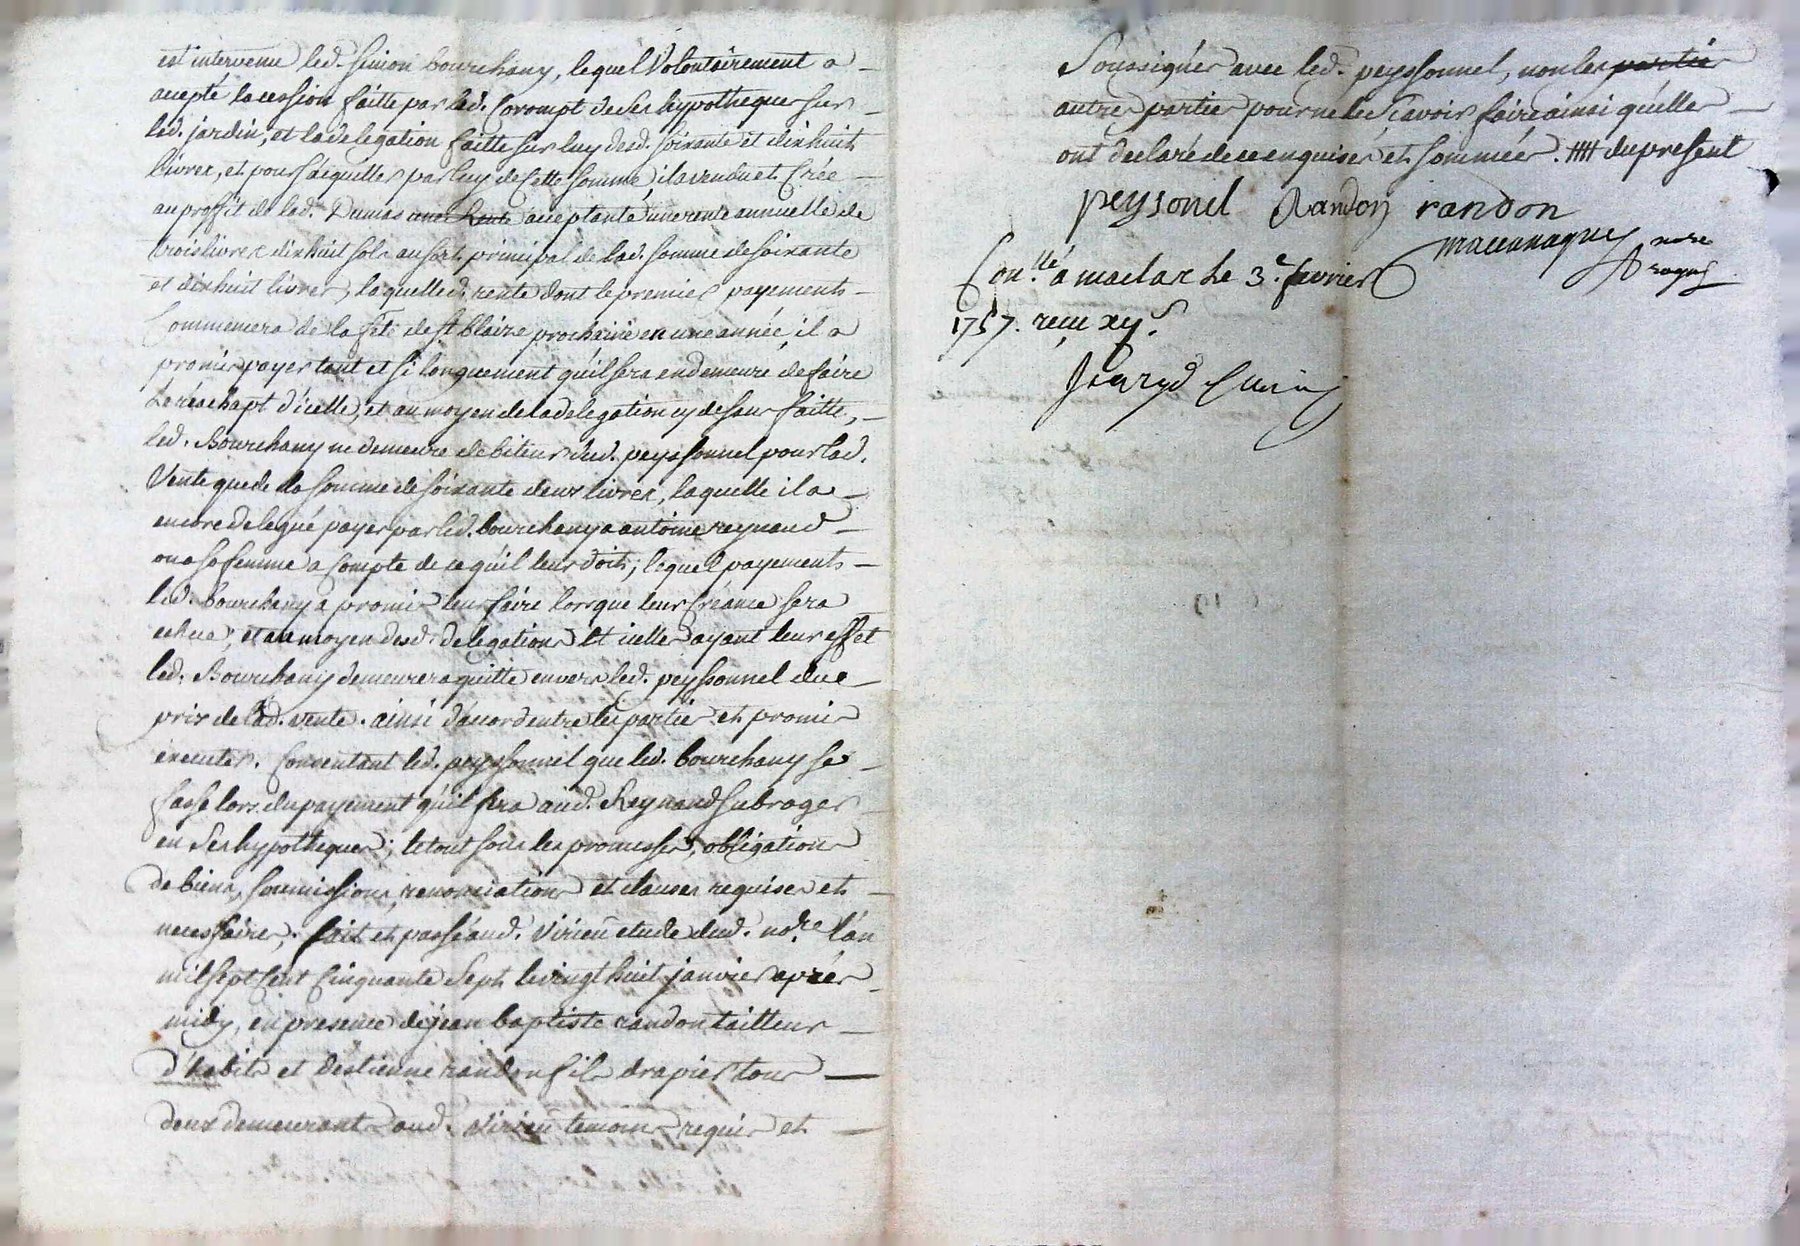 est intervenu led. Simon bourchany, lequel Volontairement a
accepté la cession faitte par led. Corompt de ses hypotheques sur
led. jardin, et la delegation faitte sur luy desd. soixante et dixhuit
livres, et pour s'aquitter par luy de cette somme, il a vendu et créé
au proffit de lad. Dumas une rente acceptante une rente annuelle de
trois livres dixhuit sols au sort principal de lad. somme de soixante
et dixhuit livres, laquelle d. rente dont le premier payement
Commencera de la fete de st blaize prochaine en une année, il a
promis payer tant et si longuement qu'il sera en demeure de faire
Le reachapt d'icelle, et au moyen de la delegation cy dessus faitte,
led. Bourchany ne demeure debiteur dud. peyssonnel pour lad.
Vente que de la somme de soixante deux livres, laquelle il a
encore delegué payer par led. bourchany a antoine reynaud
ou a sa femme a compte de ce qu'il leur doit; lequel payement
led. bourchany a promis leur faire lorsque leur créance sera
echue; et au moyen desd. delegations et icelles ayant leur effet
led. Bourchany demeurera quitte envers led. peyssonnel du
prix de lad. vente. ainsi d'accord entre les parties et promis
executer. Consentant led. peyssonnel que led. bourchany se
fasse lors du payement qu'il fera aud. Reynaud subroger
en ses hypotheques; le tout sous les promesses, obligation
de biens, soumissions, renonciations et clauses requises et
necessaires. fait et passé aud. Virieu etude dud. nore. l'an
mil sept cent cinquante sept le vingt huit janvier aprés
midy, en presence de jean baptiste randon tailleur
d'habits et d'estienne randon fils drapier tous
deux demeurants aud. virieu temoins requis et
Soussignés avec led. peyssonnel, non les parties
autres parties pour ne le sçavoir faire ainsi qu'elles
ont declaré de ce enquises et sommées. du present
peysonel Randon randon
nore
Con.llé a maclas le 3e. fevrier
1757. recu